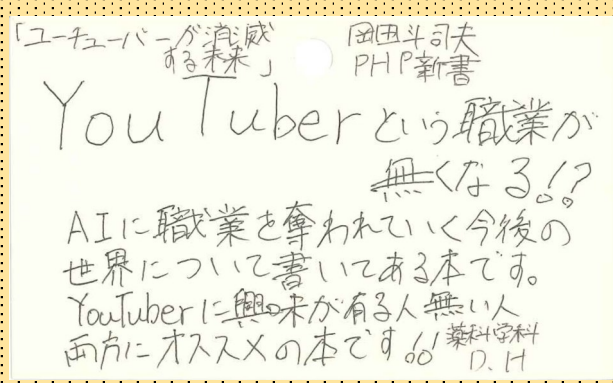 「ユーチューバーが消滅
する未来」
岡田斗司夫
PHP新書
YouTuberという職業が
無くなる!?
AIに職業を奪われていく今後の
世界について書いてある本です。
YouTuberに興味が有る人無い人
両方にオススメの本です!!
薬科学科
D.H